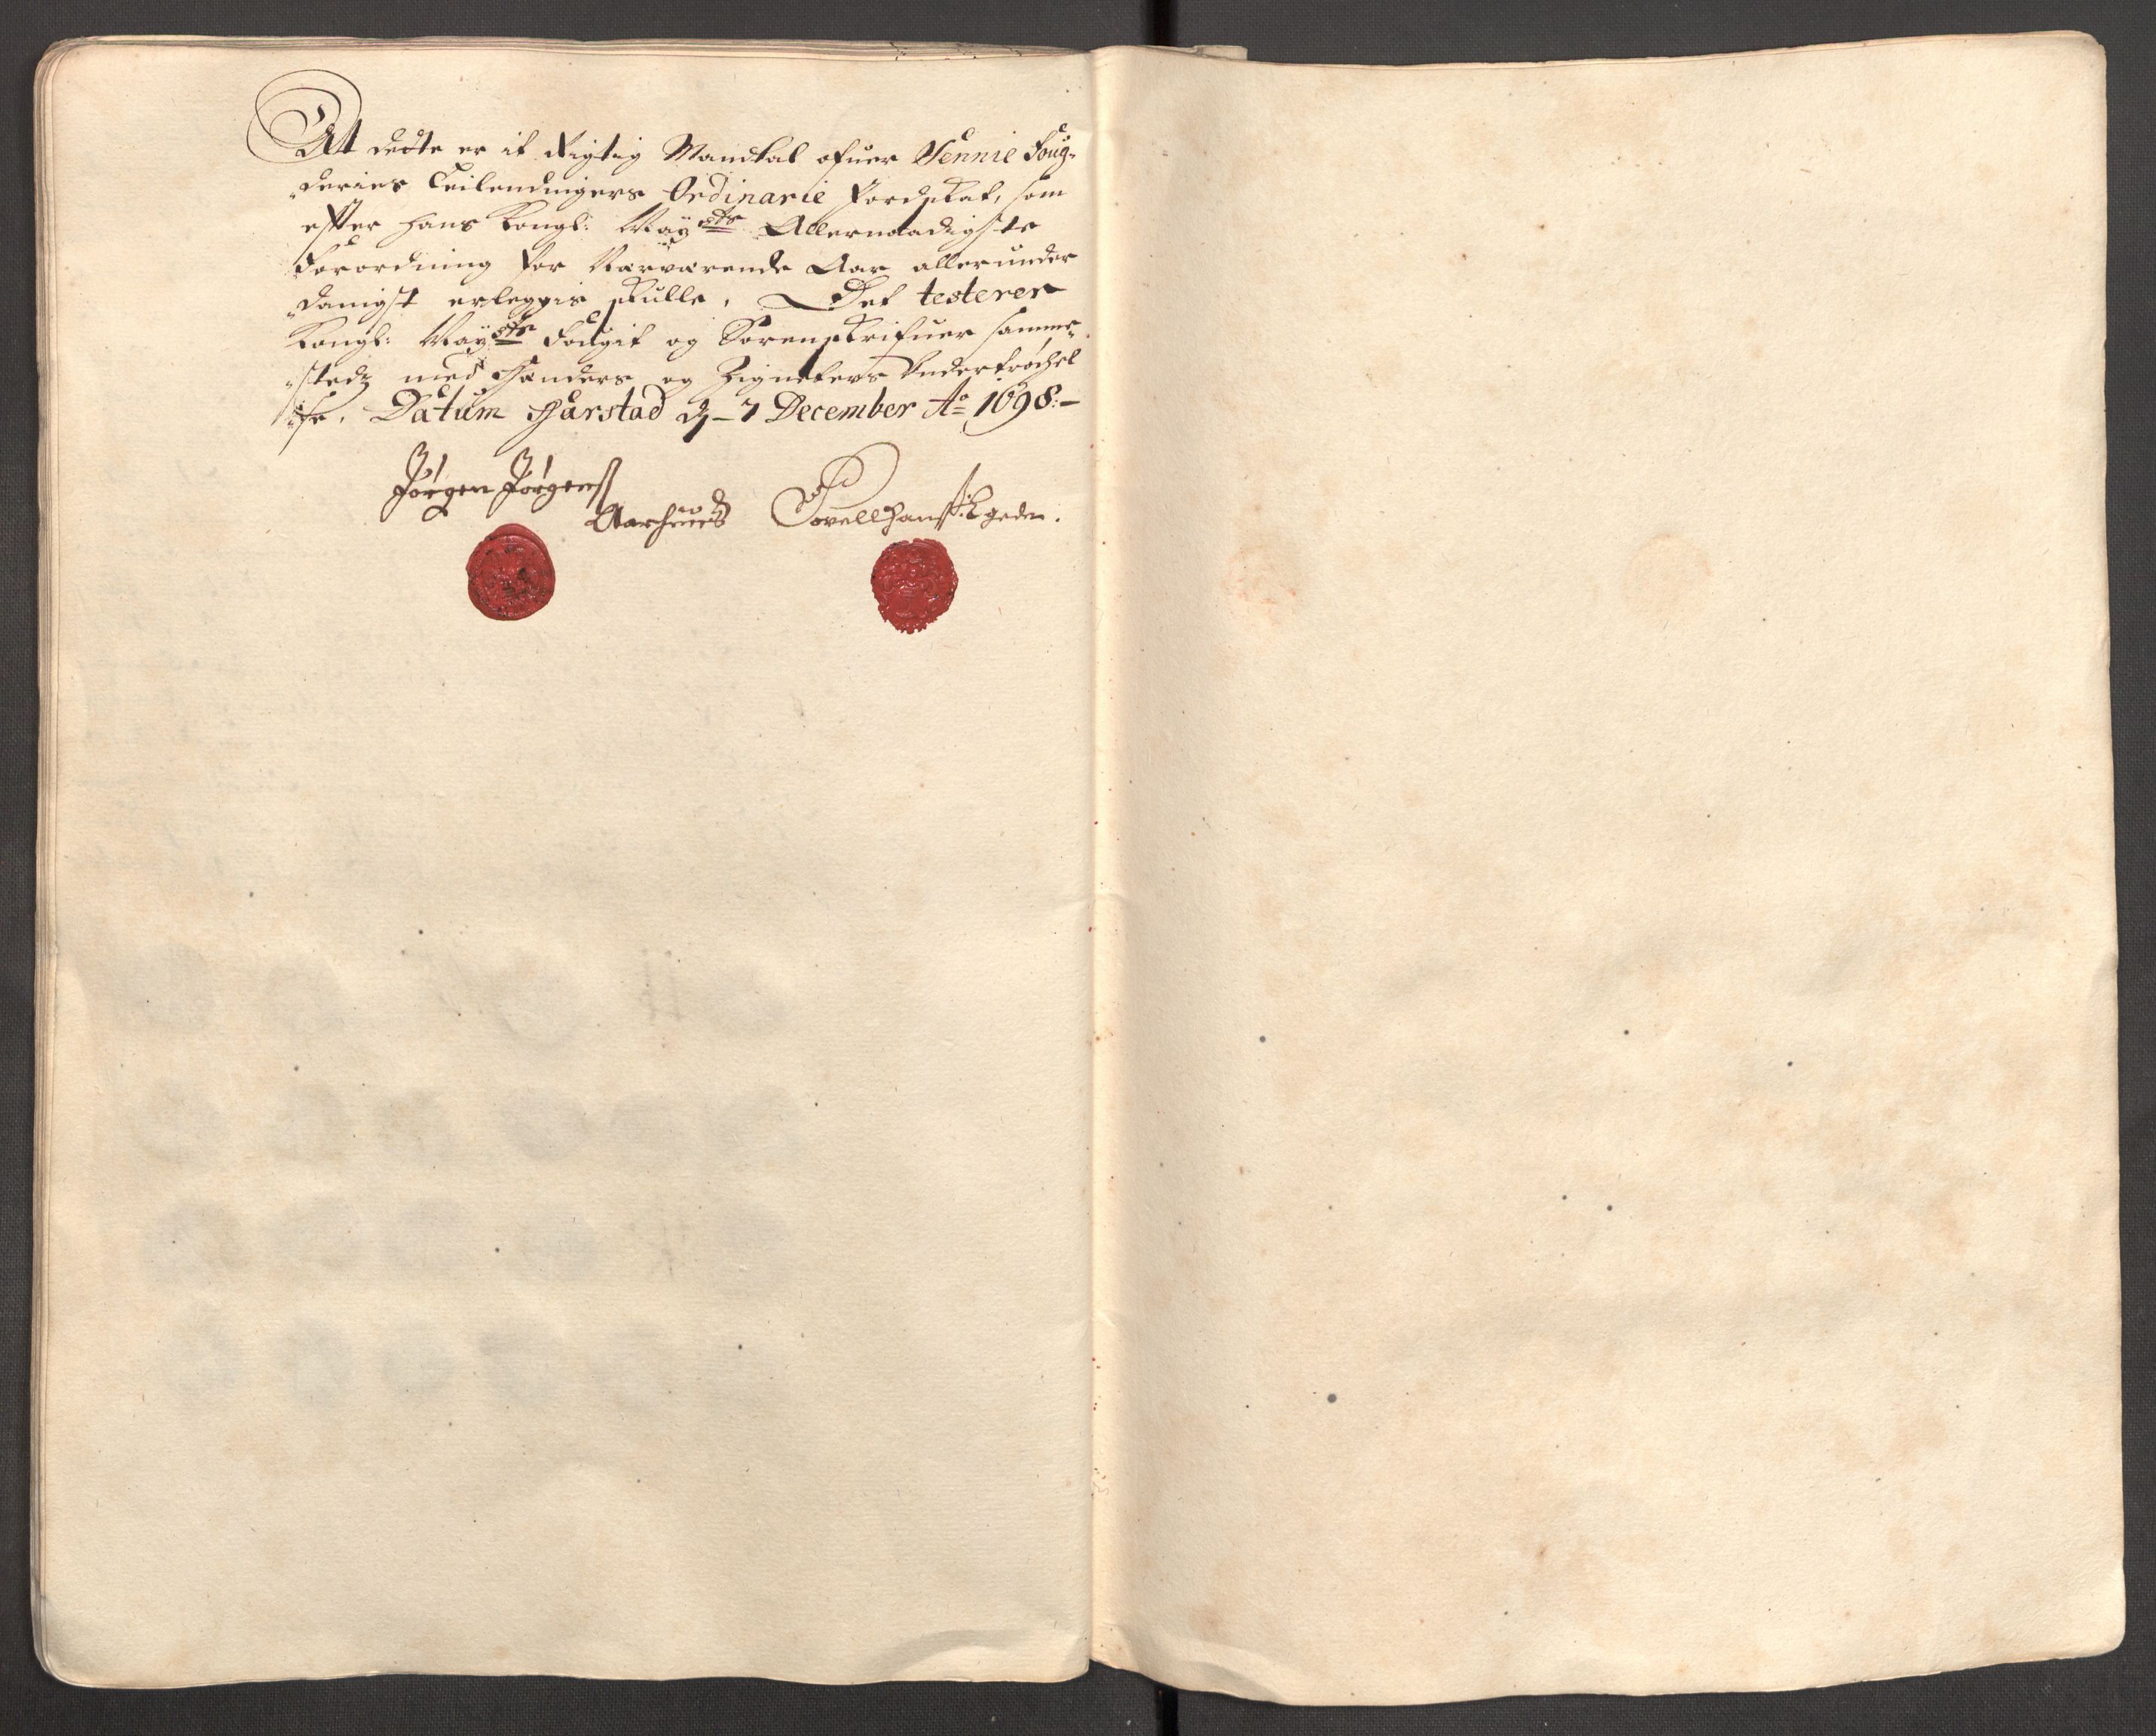 At dette er it Rigtig Mandtal ofuer Sennie Foug-
deries Leilendingers Ordinarie Jordskat, som
effter hans Kongl: Maÿsts Allernaadigste
Forordning for Nærværende Aar allerunder
danigst erleggis skulle, Det testerer
Kongl: Maÿsts Fougit og Sorenskrifuer samme-
stedz med Hænders og Zigneters Undertrychel
se. Datum Harstad d. 7 December Ao 1698.
Jørgen Jørgens
Aarhuus Povell Hanss: Egede.